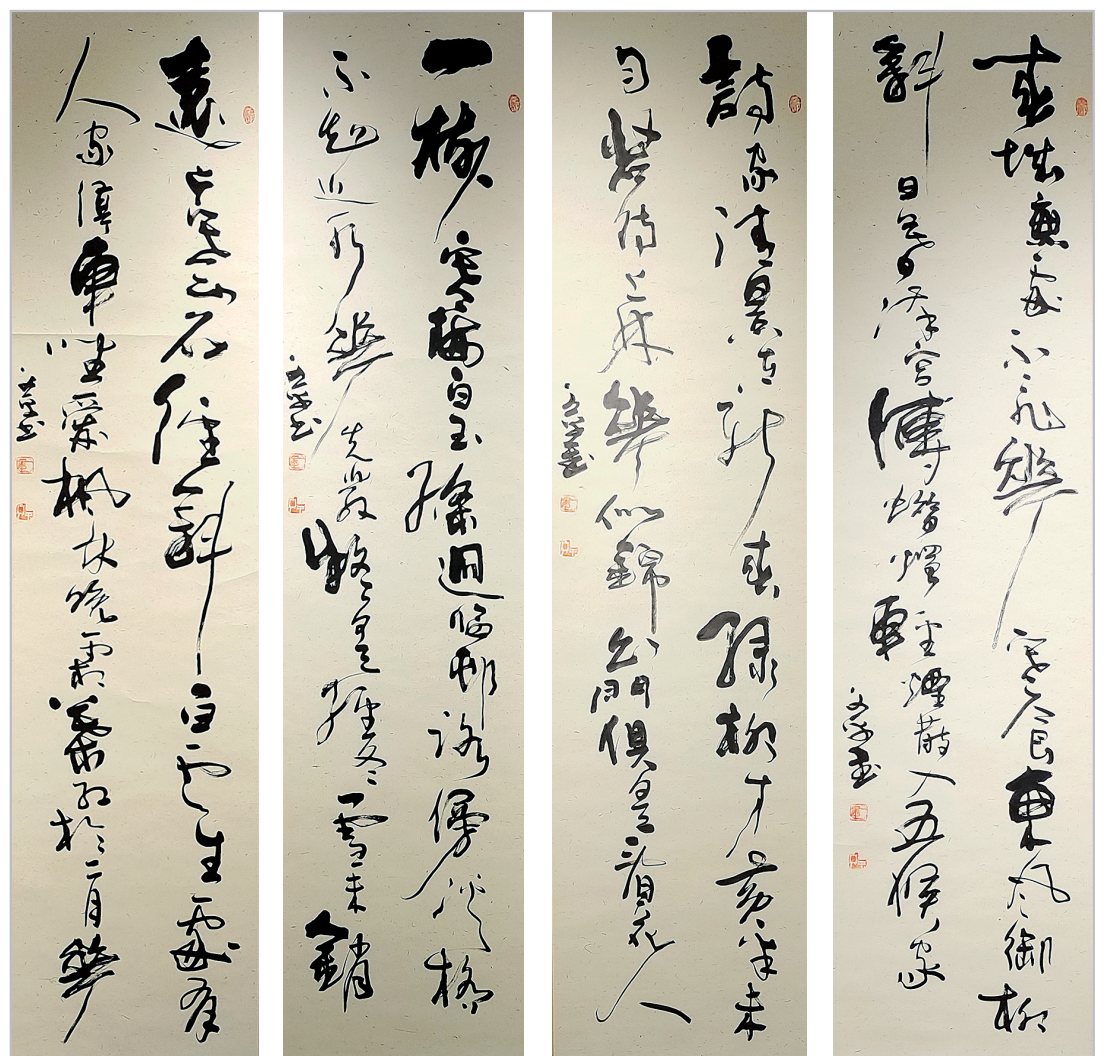 春城無處不飛華寒食東風御柳
斜日暮漢宮傳蠟燭輕煙散入五侯家
詩家清景在新春綠柳才黃半未
勻若待上林華似錦出門俱是看花人
一樹寒梅白玉條迥臨邨路傍溪橋
不知近水華先發疑是經冬雪未銷
遠上寒山石徑斜白雲生處有
人家停車坐愛楓林晚霜葉紅於二月華